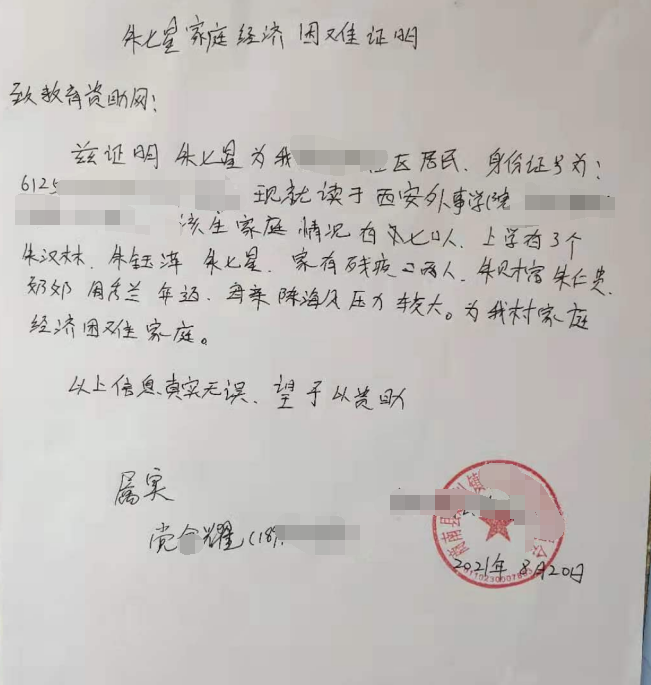 朱七星家庭经济困难证明
致教育资助网：
兹证明 朱七星为我 社区居民、身份证号为：
6125
现就读于西安外事学院
该生家庭情况有 七口人、上学有3个
朱汉林、朱钰萍 朱七星、家有残疾 两人、朱 富 朱仁贵、
奶奶 周秀兰 年迈、母亲 陈海 压力较大。为我村家庭
经济困难家庭。
以上信息真实无误、望予以资助
属实
党 耀 (18)
2021年8月20日
南县
6110230007883